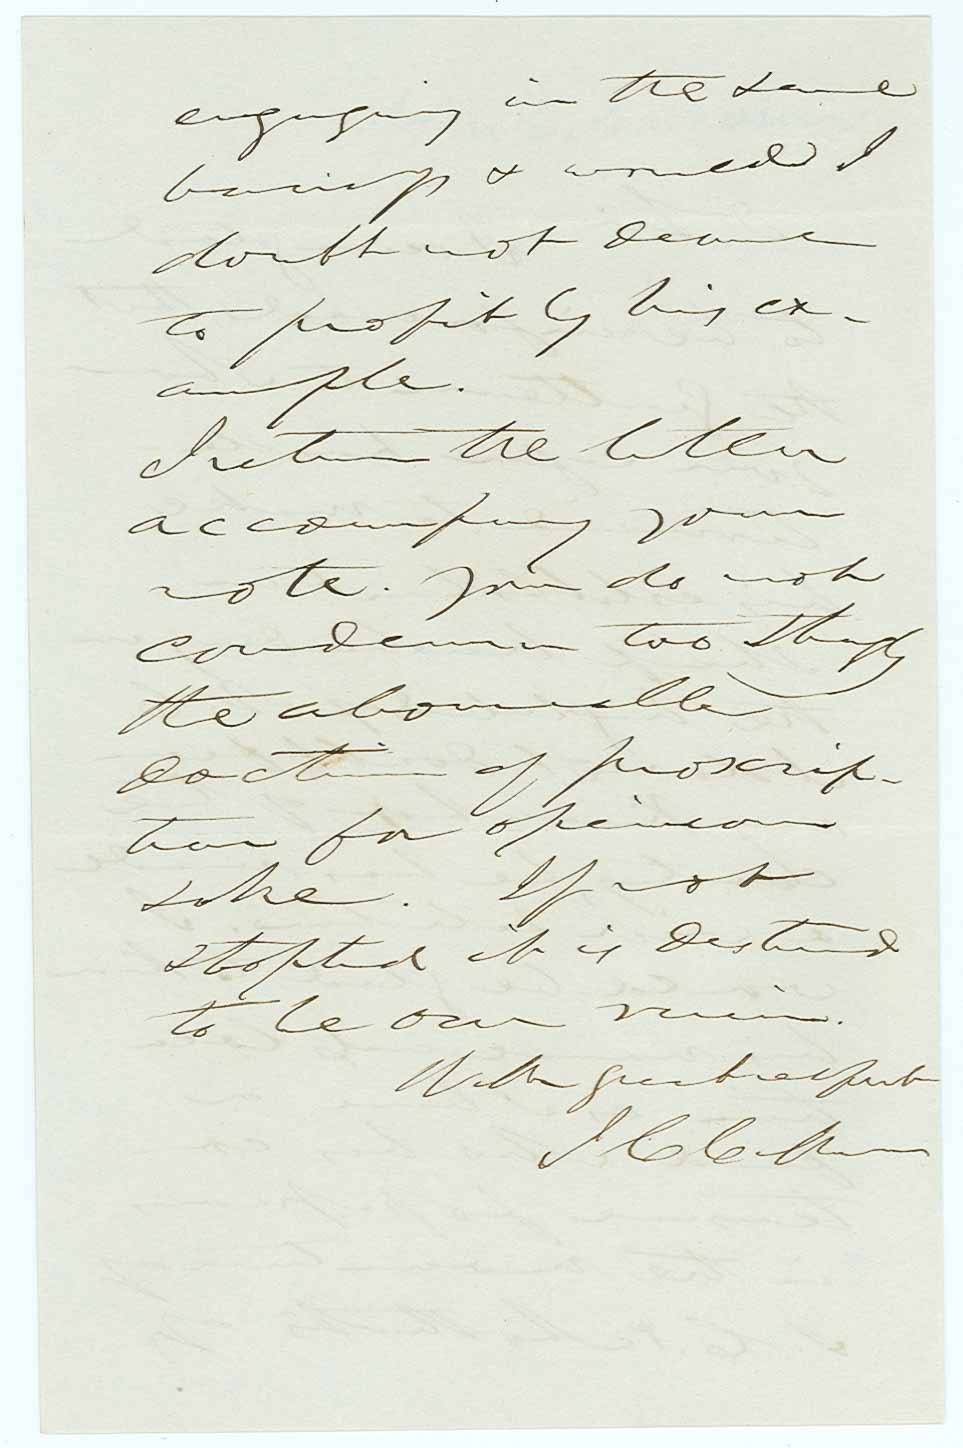 engaging in the same
business & would I
doubt not desire
to profit by his ex-
ample.
I return the letter
accompany your
note. You do not
condemn too strongly
the abominable
doctrine of proscrip-
tion for opinion
sake. If not
stopted it is destined
to be our ruin.
With great respect
J C Calhoun